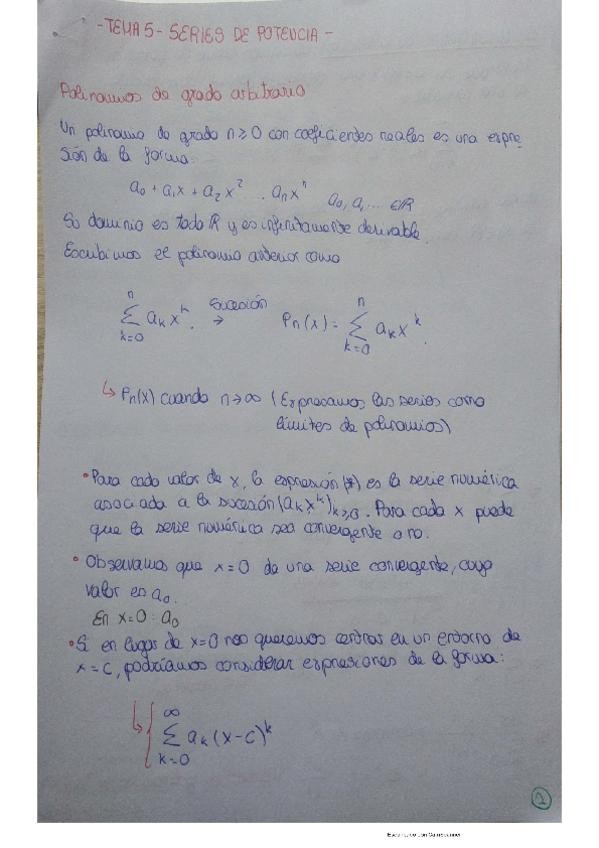 -TEMA 5- SERIES DE POTENCIA -
Polinomios de grado arbitrario
Un polinomio de grado n≥0 con coeficientes reales es una expre
sión de la forma:
a₀ + a₁x + a₂x² ... aₙxⁿ a₀, a₁ ... ∈ℝ
Su dominio es todo ℝ y es infinitamente derivable.
Escribimos el polinomio anterior como
n
∑ aₖxᵏ
k=0
Sucesión
→
n
Pₙ(x) = ∑ aₖxᵏ.
k=0
↳ Pₙ(x) cuando n→∞ (Expresamos las series como
límites de polinomios)
• Para cada valor de x, la expresión (*) es la serie numérica
asociada a la sucesión (aₖxᵏ)ₖ≥₀. Para cada x puede
que la serie numérica sea convergente o no.
• Observamos que x=0 da una serie convergente, cuyo
valor es a₀.
En x=0 : a₀
• Si en lugar de x=0 nos queremos centrar en un entorno de
x=c, podríamos considerar expresiones de la forma:
∞
↳ { ∑ aₖ(x-c)ᵏ
k=0
1
Escaneado con CamScanner